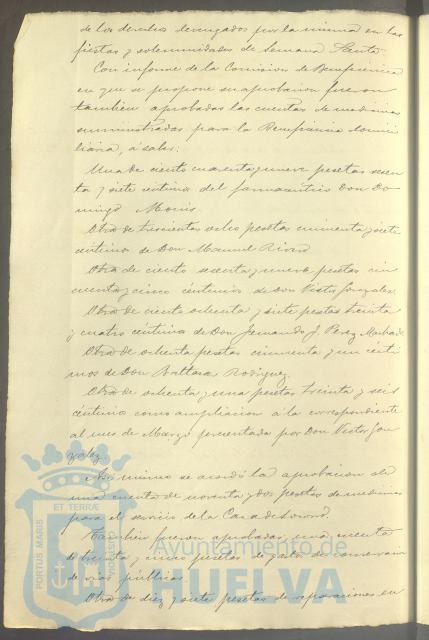 de los derechos devengados por la misma en las
fiestas y solemnidades de Semana Santa
Con informe de la Comision de Beneficencia
en que se propone su aprobacion fueron
tambien aprobadas las cuentas de medicinas
suministradas para la Beneficencia domici
liaria, á saber:
Una de ciento cuarenta y nueve pesetas sesen
ta y siete centimos del farmaceutico Don Do
mingo
Otra de trescientas ocho pesetas cincuenta y siete
centimos de Don Manuel
Otra de ciento sesenta y nueve pesetas cin
cuenta y cinco céntimos de Don Victor Gonzalez
Otra de ciento ochenta y siete pesetas treinta
y cuatro céntimos de Don Fernando J. Perez Machado
Otra de ochenta pesetas cincuenta y un cénti
mos de Don Baltasar Rodriguez
Otra de ochenta y una pesetas treinta y seis
céntimos como ampliacion á la correspondiente
al mes de Marzo presentada por Don Victor Gon
zalez
Asi mismo se acordó la aprobacion de
una cuenta de noventa y dos pesetas de medicinas
para el servicio de la Casa de Socorro.
Tambien fueron aprobadas una cuenta
de treinta y nueve pesetas de gastos de conservacion
de vias públicas
Otra de diez y siete pesetas de reparaciones en
PORTUS MARIS
ET TERRÆ
CUSTODIA
Ayuntamiento de
HUELVA